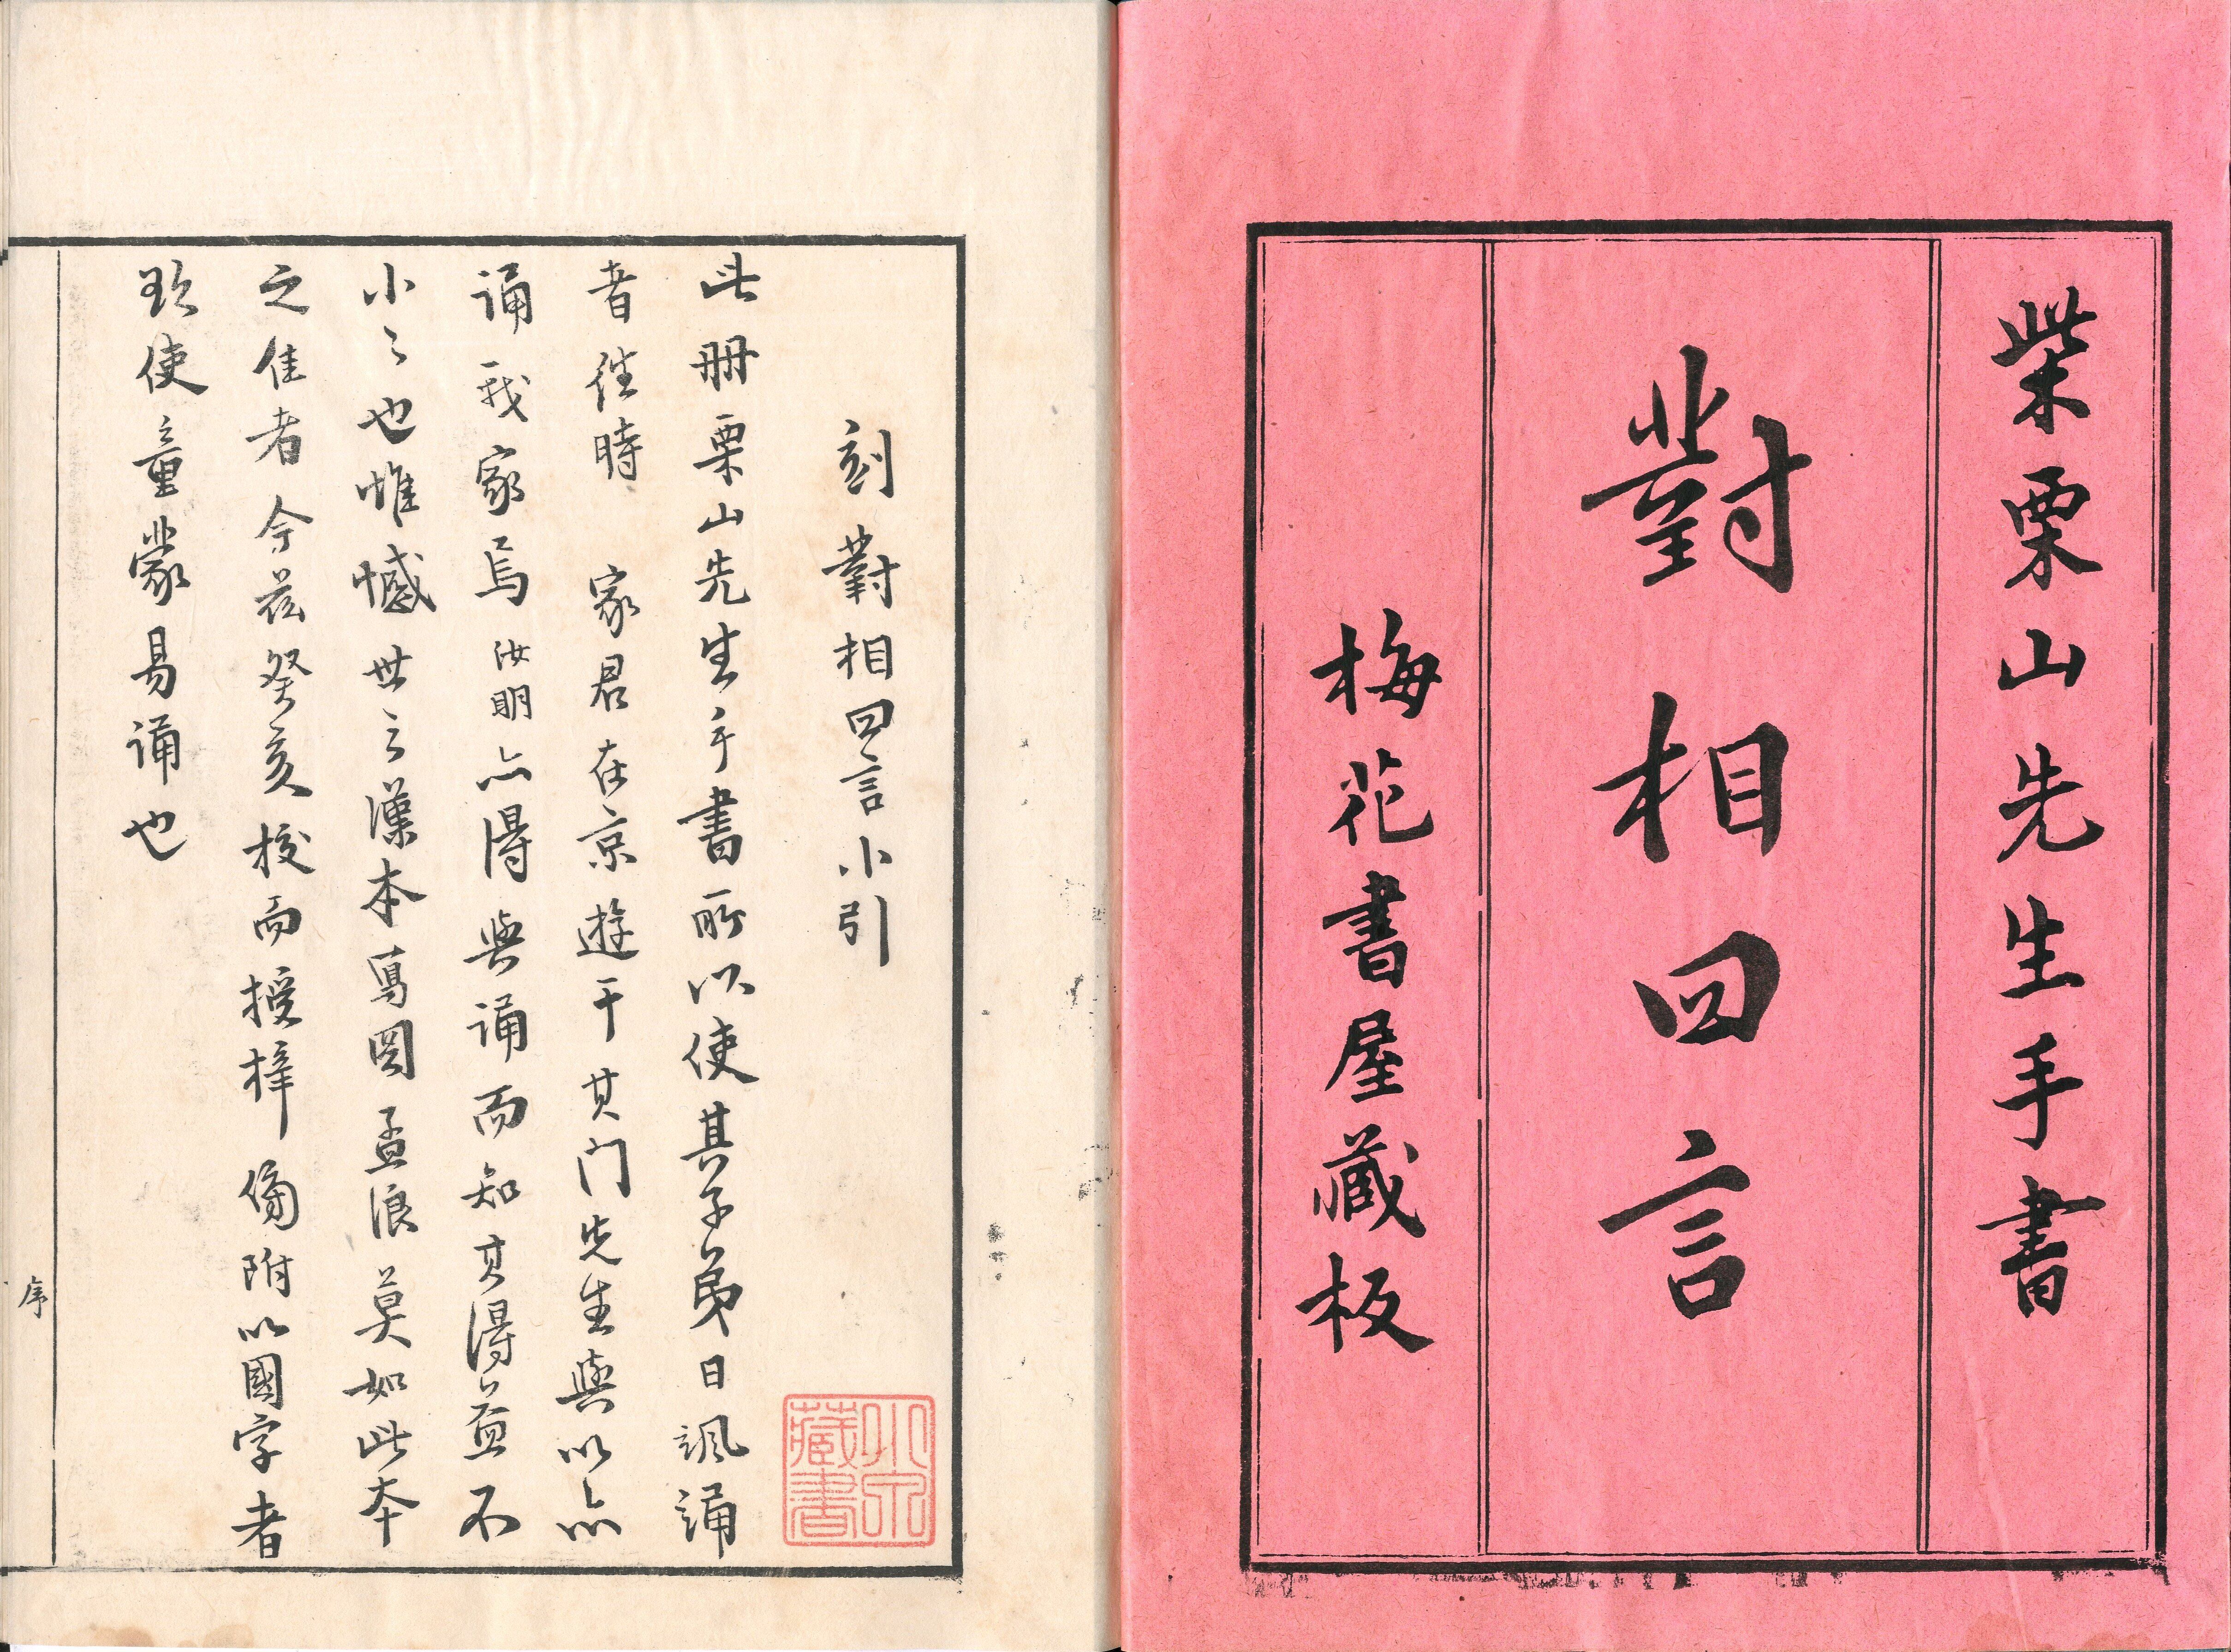 柴栗山先生手書
對相四言
梅花書屋藏板
刻對相四言小引
此冊栗山先生手書所以使其子弟日諷誦
者往時 家君在京遊于其门先生與以亦
誦我家焉汝明亦得與誦而知其得益不
小〻也惟憾世之漢本寫圖孟浪莫如此本
之佳者今茲癸亥校而授梓傍附以國字者
欲使童蒙易誦也
序
小泉
藏書